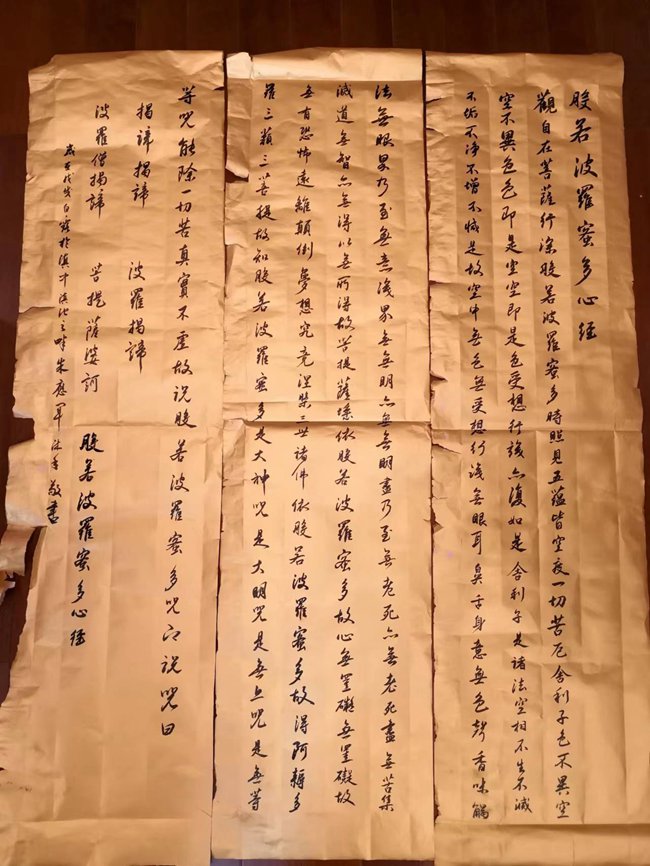 般若波羅蜜多心經
觀自在菩薩行深般若波羅蜜多時照見五蘊皆空度一切苦厄舍利子色不異空
空不異色色即是空空即是色受想行識亦復如是舍利子是諸法空相不生不滅
不垢不净不增不减是故空中無色無受想行識無眼耳鼻舌身意無色聲香味觸
法無眼界乃至無意識界無無明亦無無明盡乃至無老死亦無老死盡無苦集
滅道無智亦無得以無所得故菩提薩埵依般若波羅蜜多故心無罣礙無罣礙故
無有恐怖遠離顛倒夢想究竟涅槃三世諸佛依般若波羅蜜多故得阿耨多
羅三藐三菩提故知般若波羅蜜多是大神咒是大明咒是無上咒是無等
等咒能除一切苦真實不虛故說般若波羅蜜多咒即說咒曰
揭諦揭諦 波羅揭諦
波羅僧揭諦 菩提薩婆訶
般若波羅蜜多心經
歲白露於滇池之畔朱應軍沐手敬書